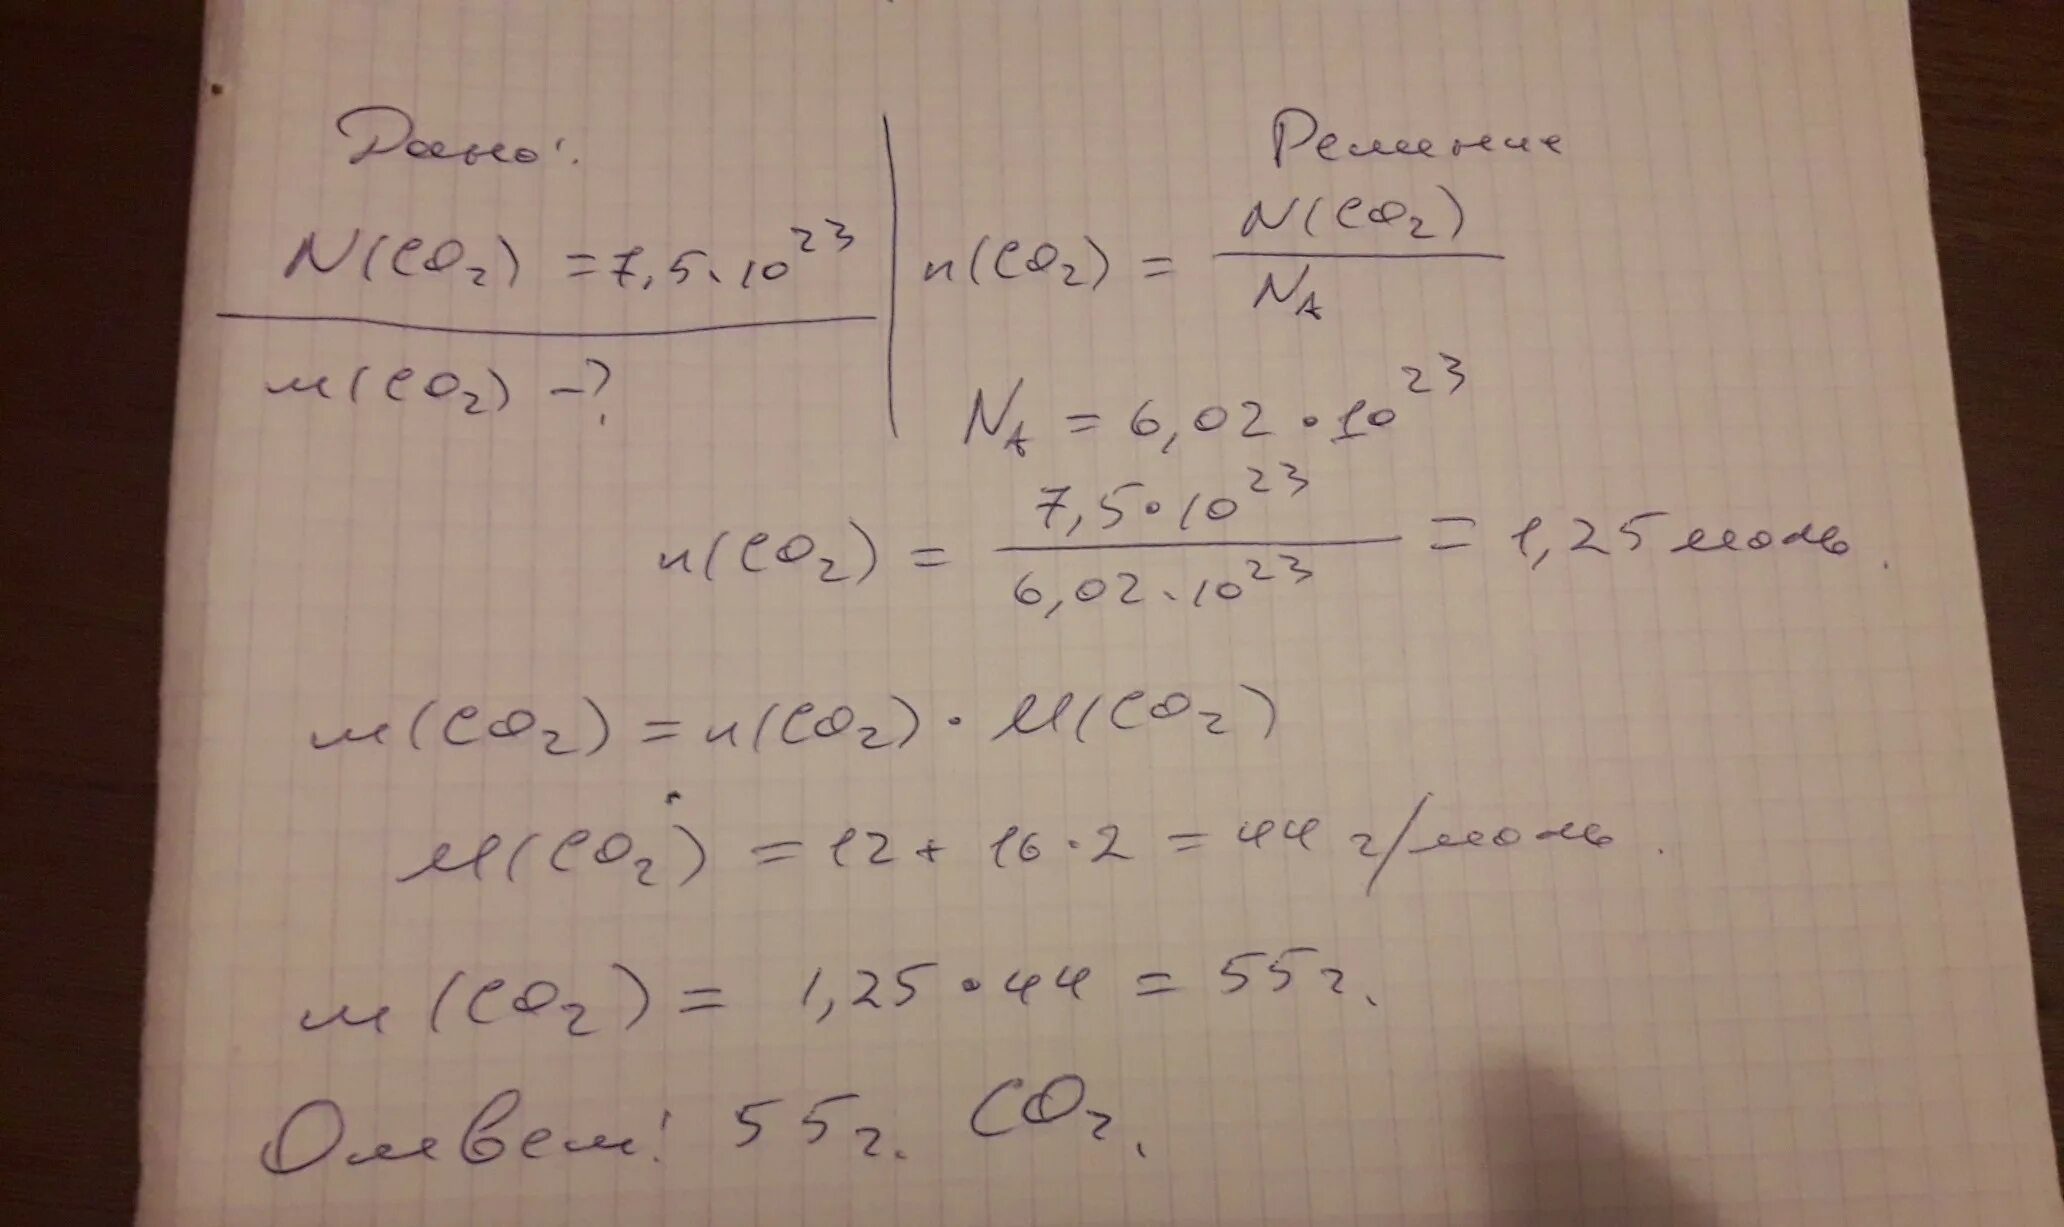 Дано:
N(CO₂) = 7,5·10²³
m(CO₂) -?
Решение
n(CO₂) = N(CO₂) / N_A
N_A = 6,02·10²³
n(CO₂) = 7,5·10²³ / 6,02·10²³ = 1,25 моль.
m(CO₂) = n(CO₂)·M(CO₂)
M(CO₂) = 12 + 16·2 = 44 г/моль.
m(CO₂) = 1,25·44 = 55 г.
Ответ: 55 г. CO₂.